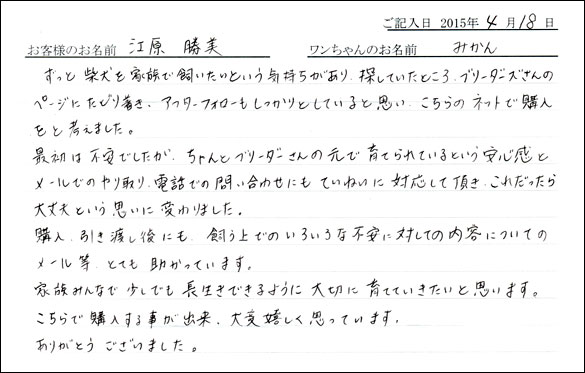 ご記入日 2015年 4 月 18 日
お客様のお名前 江原 勝美 ワンちゃんのお名前 みかん
ずっと柴犬を家族で飼いたいという気持ちがあり、探していたところ、ブリーダーズさんの
ページにたどり着き、アフターフォローもしっかりとしていると思い、こちらのネットで購入
をと考えました。
最初は不安でしたが、ちゃんとブリーダーさんの元で育てられているという安心感と
メールでのやり取り、電話での問い合わせにもていねいに対応して頂き、これだったら
大丈夫という思いに変わりました。
購入、引き渡し後にも、飼う上でのいろいろな不安に対しての内容についての
メール等、とても助かっています。
家族みんなで少しでも長生きできるように大切に育てていきたいと思います。
こちらで購入する事が出来、大変嬉しく思っています。
ありがとうございました。